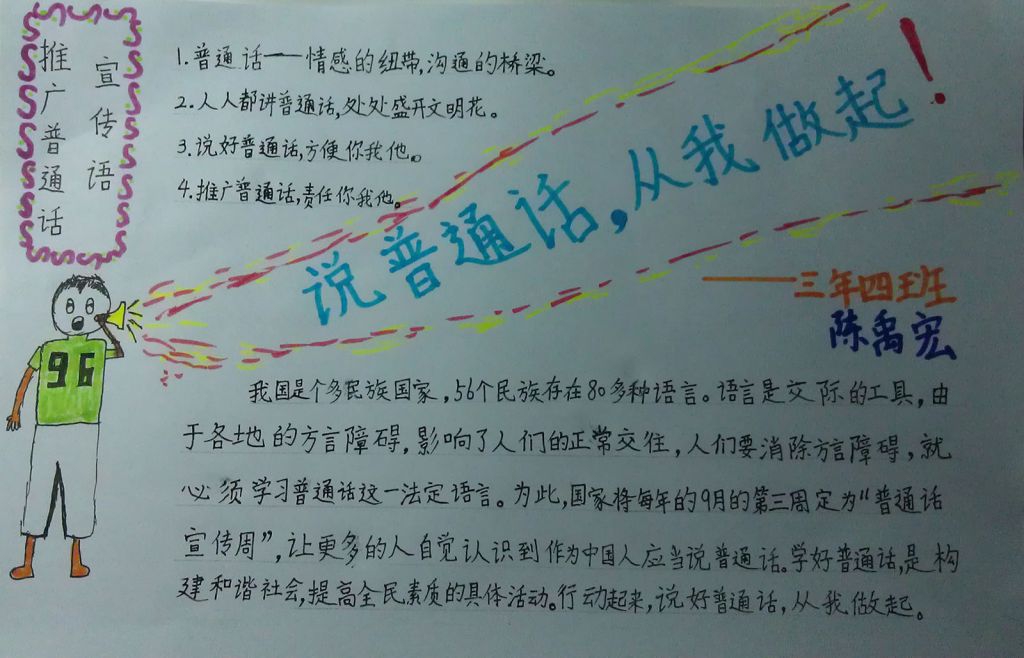 推广普通话
宣传语
1.普通话——情感的纽带,沟通的桥梁。
2.人人都讲普通话,处处盛开文明花。
3.说好普通话,方便你我他。
4.推广普通话,责任你我他。
说普通话,从我做起!
——三年四班
陈禹宏
96
我国是个多民族国家,56个民族存在80多种语言。语言是交际的工具,由
于各地的方言障碍,影响了人们的正常交往,人们要消除方言障碍,就
必须学习普通话这一法定语言。为此,国家将每年的9月的第三周定为“普通话
宣传周”,让更多的人自觉认识到作为中国人应当说普通话。学好普通话,是构
建和谐社会,提高全民素质的具体活动。行动起来,说好普通话,从我做起。